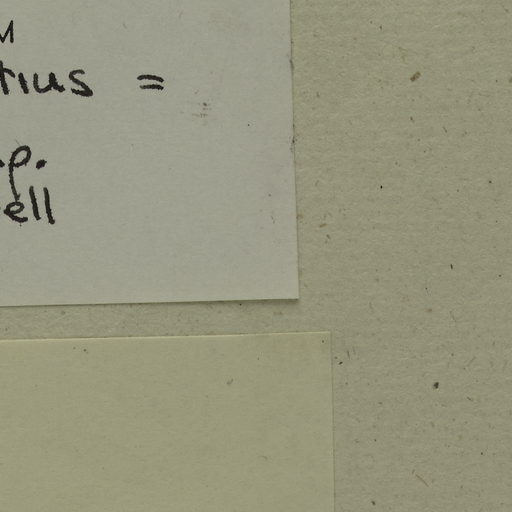 M
tius =
.p.
ell